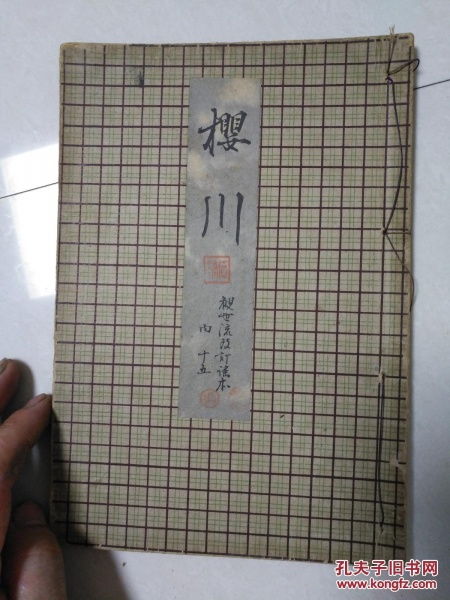 櫻川
觀世流改訂謡本
内 十五
孔夫子旧书网
www.kongfz.com